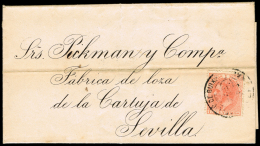 Srs. Pickman y Compª
Fábrica de loza
de la Cartuja de
Sevilla